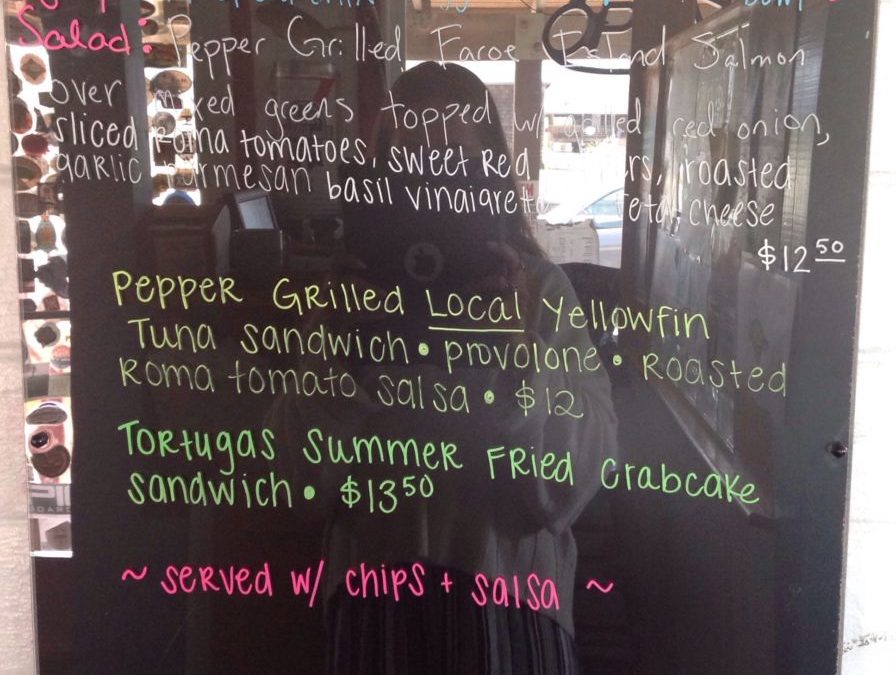 Salad: Pepper Grilled Faroe Island Salmon
over mixed greens topped w/ grilled red onion,
sliced Roma tomatoes, sweet Red roasted
garlic Parmesan basil vinaigrette feta cheese
$12 50
Pepper Grilled Local Yellowfin
Tuna sandwich • provolone • Roasted
Roma tomato salsa • $12
Tortugas Summer Fried Crabcake
sandwich • $13 50
~ served w/ chips + salsa ~